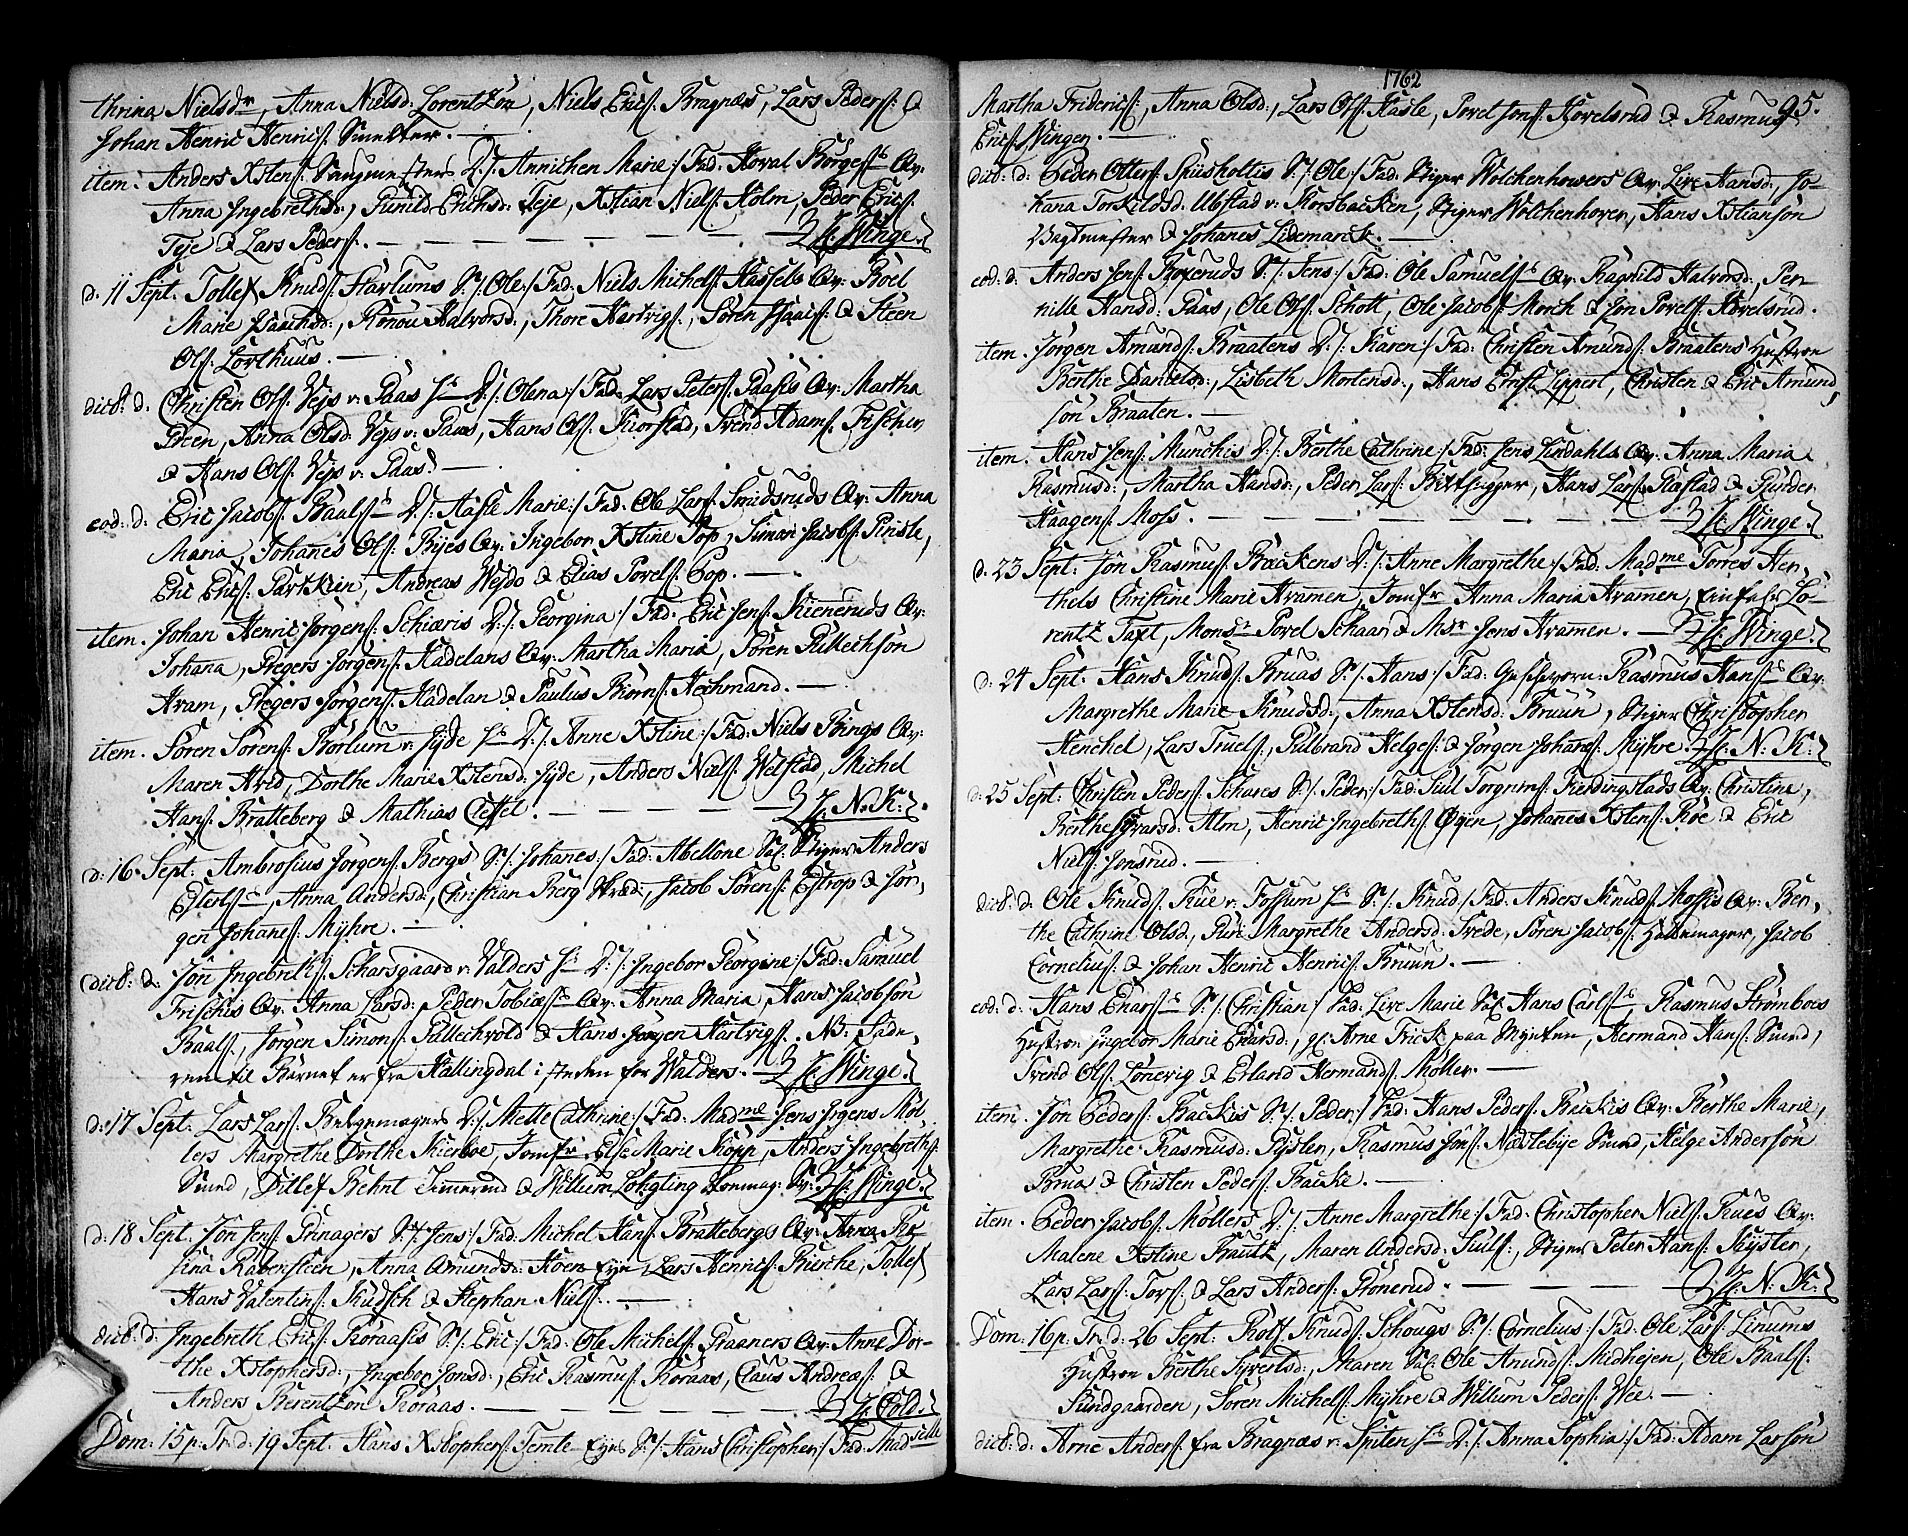 thrina Nielsdr, Anna Nielsd: Lorentzón, Niels Erics: Bragnæs, Lars Peders: &
Johan Henric Henrics: Smelter. —
item. Anders Xstens: D:/: Annichen Marie:/ Fad: Horal Børges Qv:
Anna Ingebrethsd:, Gunild Erichsd: Teje, Xstian Niels: Holm, Peder Erics:
Teje & Lars Peders: — — — — — H. Winge.
d. 11 Sept: Tollef Knuds: Starlums S:/: Ole:/ Fad: Niels Michels: Hassels Qv: Boel
Marie Isaachsd:, Rønou Halvorsd:, Thore Hartvigs:, Søren Isaacs: & Steen
Ols: Lortkuus. —
dict: d. Christen Ols: Vejs v: Paas D:/: Olena:/ Fad: Lars Peters: Paasis Qv: Martha
Steen, Anna Olsd: Vejs v: Paas, Hans Ols: Kiorstad, Svend Adams: Fischer,
& Hans Ols: Vejs v: Paas: —
eod: d. Eric Jacobs: Baals D:/: Aasle Marie:/ Fad: Ole Lars: Smedsruds Qv: Anna
Maria, Johanes Ols: Byes Qv: Ingebor Xstine Pop, Simon Jacobs: Pinsle,
Eric Erics: Parkkien, Andreas Wejdo & Elias Povels: Cop. —
item. Johan Henric Jørgens: Schiæris D:/: Georgina:/ Fad: Eric Jens: Kieneruds Qv:
Johana, Gregers Jørgens: Hadelans Qv: Martha Maria, Søren Gullechsón
Aram, Gregers Jørgens: Hadelan & Paulus Biørns: Hechmand. —
item. Søren Sørens: Børlum v: Jyde D:/: Anne Xstine:/ Fad: Niels Bings Qv:
Maren Arvd, Dorthe Marie Xstensd: Jyde, Anders Niels: Welstad, Michel
Hans: Bratteberg & Mathias Cettel. — — — — H. N. K:
d. 16 Sept: Ambrosius Jørgens: Bergs S:/: Johanes:/ Fad: Abellone Sal: Stiger Anders
Anna Andersd:, Christian Berg Skræd:, Jacob Sørens: Estrop & Jør,
gen Johanes: Myhre. —
dict: d. Jón Ingebreths: Scharsgaard v: Valders D:/: Ingebor Georgine:/ Fad: Samuel
Frischis Qv: Anna Larsd: Peder Tobiæs Qv: Anna Maria, Hans Jacobsón
Baals:, Jørgen Simons: Gullechvold & Hans Jørgen Hartvigs: NB: Fade,
ren til Barnet er fra Hallingdal i steden for Walders. — H. Winge.
d: 17 Sept: Lars Lars: D:/: Mette Cathrine:/ Fad: Madme Jens Jrgens Møl,
lers Margrethe Dorthe Kierboe, Jomfr Else Marie Kopp, Anders Ingebreths:
Smed, Ditlef Behnt & Willum H. Winge.
d: 18 Sept: Jón Jens: Prinagers S:/: Jens:/ Fad: Michel Hans: Brattebergs Qv: Anna Ro,
sina Rabensteen, Anna Amunds: Hoen Eyn, Lars Henrics: Burche, Tollef
Hans Valentins: Kudsch & Stephan Niels: —
dict: d. Ingebreth Erics: Roraasis S:/: Eric:/ Fad: Ole Michels: Praaners Qv: Anne Dor-
the Xstophersd:, Ingebor Jonsd:, Eric Rasmus: Roraas, Claus Andreas: &
Anders Berentzón Roraas. — — — — H. Cold.
Dom: 15 p: Tr: d: 19 Sept: Hans Xstophers: Temte Eyes S:/: Hans Christopher:/ Fad: Madselle
1762
Martha Frideriсs:, Anna Olsd:, Lars Ols: Hasle, Povel Jons: Hovelsrud & Rasmus 95.
Erics: Wingen. —
dict: d: Peder Otters: Skiisholtis S:/: Ole:/ Fad: Stiger Wolchenhowers Qv: Live Hansd:, Jo-
hana Torkildsd: Ulstad v: Korsbacken, Stiger Wolchenhover, Hans Xstiansón
Vagtmester & Johanes Lidemarck. —
eod: d: Anders Jens: Boxeruds S:/: Jens:/ Fad: Ole Samuels Qv: Ragnild Halvorsd:, Per-
nille Hansd: Paas, Ole Ols: Schott, Ole Jacobs: Morch & Jon Povels: Hovelsrud.
item. Jørgen Amunds: Braatens D:/: Karen:/ Fad: Christen Amunds: Braatens Hustroe
Berthe Danielsd:, Lisbeth Mortensd:, Hans Ernst Lippert, Christen & Eric Amund,
són Braaten. —
item. Hans Jens: Munchis D:/: Berthe Cathrine:/ Fad: Jens Lindahls Qv: Anna Maria
Rasmusd:, Martha Hansd:, Peder Lars: Bilthugger, Hans Lars: Plæstad & Gudder
Haagens: Moss. — — — — — H. Winge.
d: 23 Sept: Jón Rasmus: Backens D:/: Anne Margrethe:/ Fad: Madme Torres Her,
thels Christine Marie Aramen, Jomfr Anna Maria Aramen, Lo-
rentz Taxt, Monsr Povel Schaar & Msr Jens Aramen. — H: Winge.
d: 24 Sept: Hans Knuds: Bruas S:/: Hans:/ Fad: Geschworn: Rasmus Hans Qv:
Margrethe Marie Knudsd:, Anna Xstensd: Bruun, Stiger Christopher
Henchel, Lars Truels:, Gulbrand Helges: & Jørgen Johans: Myhre. H. N. K:
d: 25 Sept: Christen Peders: Schares S:/: Peder:/ Fad: Juul Torgrims: Fierdingstads Qv: Christine,
Berthe Syvarsd: Alm, Henric Ingebreths: Øyen, Johanes Xstens: Roe & Eric
Niels: Jonsrud. —
dict: d: Ole Knuds: Rue v: Fossum S:/: Knud:/ Fad: Anders Knuds: Mossis Qv: Ber,
the Cathrine Olsd, Guri Margrethe Andersd: Svede, Søren Jacobs: Hattemager, Jacob
Cornelius: & Johan Henric Henrics: Bruun. —
eod: d: Hans Enars S:/: Christian:/ Fad: Live Marie Sal: Hans Carls, Rasmus Strømboes
Hustroe Ingebor Marie Enarsd:, gl: Arne Frick paa Mynten, Hermand Hans: Smed,
Svend Ols: Lonevig & Erland Hermands: Møller. —
item. Jón Peders: Backis S:/: Peder:/ Fad: Hans Peders: Backis Qv: Berthe Marie,
Margrethe Rasmusd: Gysler, Rasmus Jóns: Næstebye Smed, Helge Andersón
Brua & Christen Peders: Backe. —
item. Peder Jacobs: Møllers D:/: Anne Margrethe:/ Fad: Christopher Niels: Rues Qv:
Malene Xstine Brautz, Maren Andersd: Juls:, Stiger Peter Hans: Kyster,
Lars Lars: Tors: & Lars Anders: Gronerud. — — — H: N: K:
Dom: 16 p: Tr: d: 26 Sept: Rolf Knuds: Schougs S:/: Cornelius:/ Fad: Ole Lars: Linums
Hustroe Berthe Syvertsd:, Maren Sal: Ole Anunds: Midhejen, Ole Baals:
Sundgaarden, Søren Michels: Myhre & Willum Peders: Wee. —
dict: d: Arne Anders: fra Bragnæs v: Spiten D:/: Anna Sophia:/ Fad: Adam Larsón